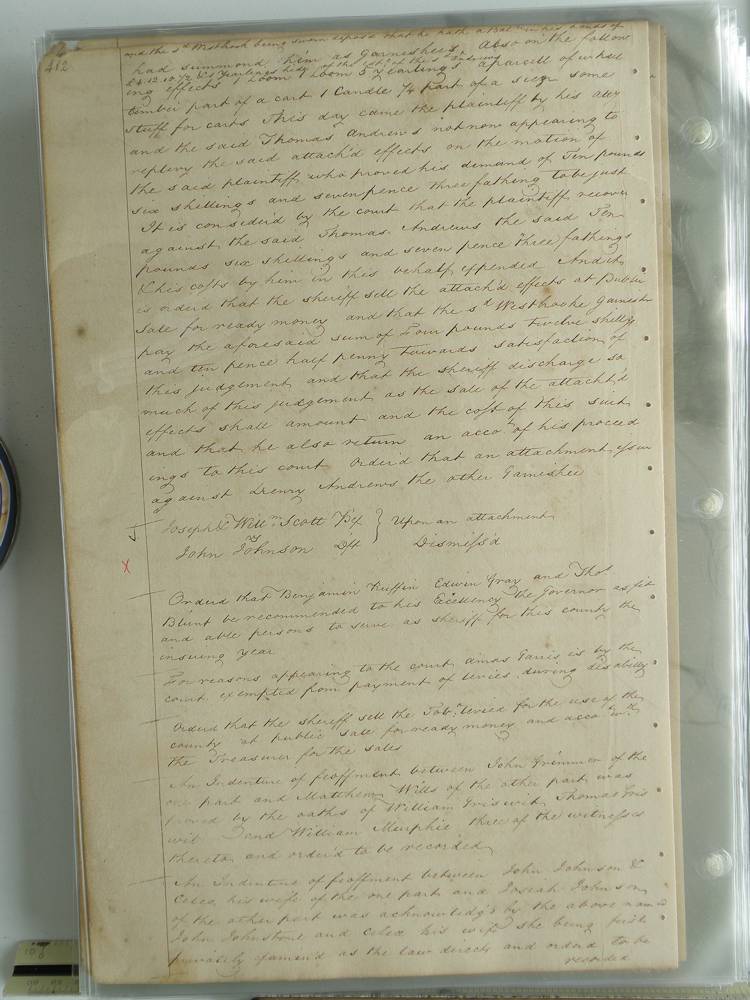 412
and the sd Westbrook being sworn deposd that he hath a Bal in his hands of
£4.12.10½ & 5 Yearlings hides of the Est of the sd Andrews
had summond him as Garnishee Also on the follow
ing effects 1 Loom 5 Yearlings a parcell of
timber part of a cart 1 Candle part of a some
stuff for carts This day came the plaintiff by his atty
and the said Thomas Andrews not now appearing to
replevy the said attach'd effects on the motion of
the said plaintiff who proved his demand of Ten pounds
six shillings and seven pence three fathing to be just
It is consider'd by the court that the plaintiff recover
against the said Thomas Andrews the said Ten
pounds six shillings and seven pence three fathings
& his costs by him in this behalf expended And it
is order'd that the sheriff sell the attach'd effects at Public
sale for ready money and that the sd Westbrooke Garnishee
pay the aforesaid sum of Four pounds twelve shillgs
and ten pence half penny towards satisfaction of
this judgement and that the sheriff discharge so
much of this judgement as the sale of the attacht'd
effects shall amount and the cost of this suit
and that he also return an accot of his proceed
ings to this court Order'd that an attachment issue
against Henry Andrews the other Garnishee
Joseph & Willm Scott Plt } Upon an attachment
John Johnson Dft Dismiss'd
X
Orderd that Benjamin Ruffin Edwin Gray and Thos
Blunt be recommended to his Excellency the Governor as fit
and able persons to serve as sheriff for this county the
insuing year
For reasons appearing to the court amos Garris is by the
court exempted from payment of levies during disability
Orderd that the sheriff sell the Tobo levied for the use of the
county at public sale for ready money and acco wth
the Treasurer for the sales
An Indenture of feoffment between John Grimmer of the
one part and Matthew Wills of the other part was
proved by the oaths of William Griswit Thomas Gris
wit and William Murphie three of the witnesses
thereto and order'd to be recorded
An Indenture of feoffment between John Johnson &
Celea his wife of the one part and Josiah Johnson
of the other part was acknowledg'd by the above named
John Johnstone and Celea his wife she being first
privately examin'd as the law directs and orderd to be
recorded